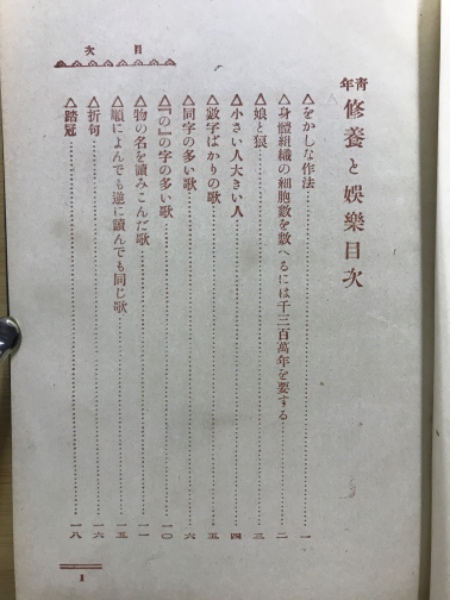 目次
青年 修養と娯樂目次
△をかしな作法……一
△身體組織の細胞數を數へるには千三百萬年を要する……二
△娘と狼……三
△小さい人大きい人……四
△數字ばかりの歌……五
△同字の多い歌……六
△『の』の字の多い歌……一〇
△物の名を讀みこんだ歌……一一
△順によんでも逆に讀んでも同じ歌……一五
△折句……一六
△踏冠……一八
1